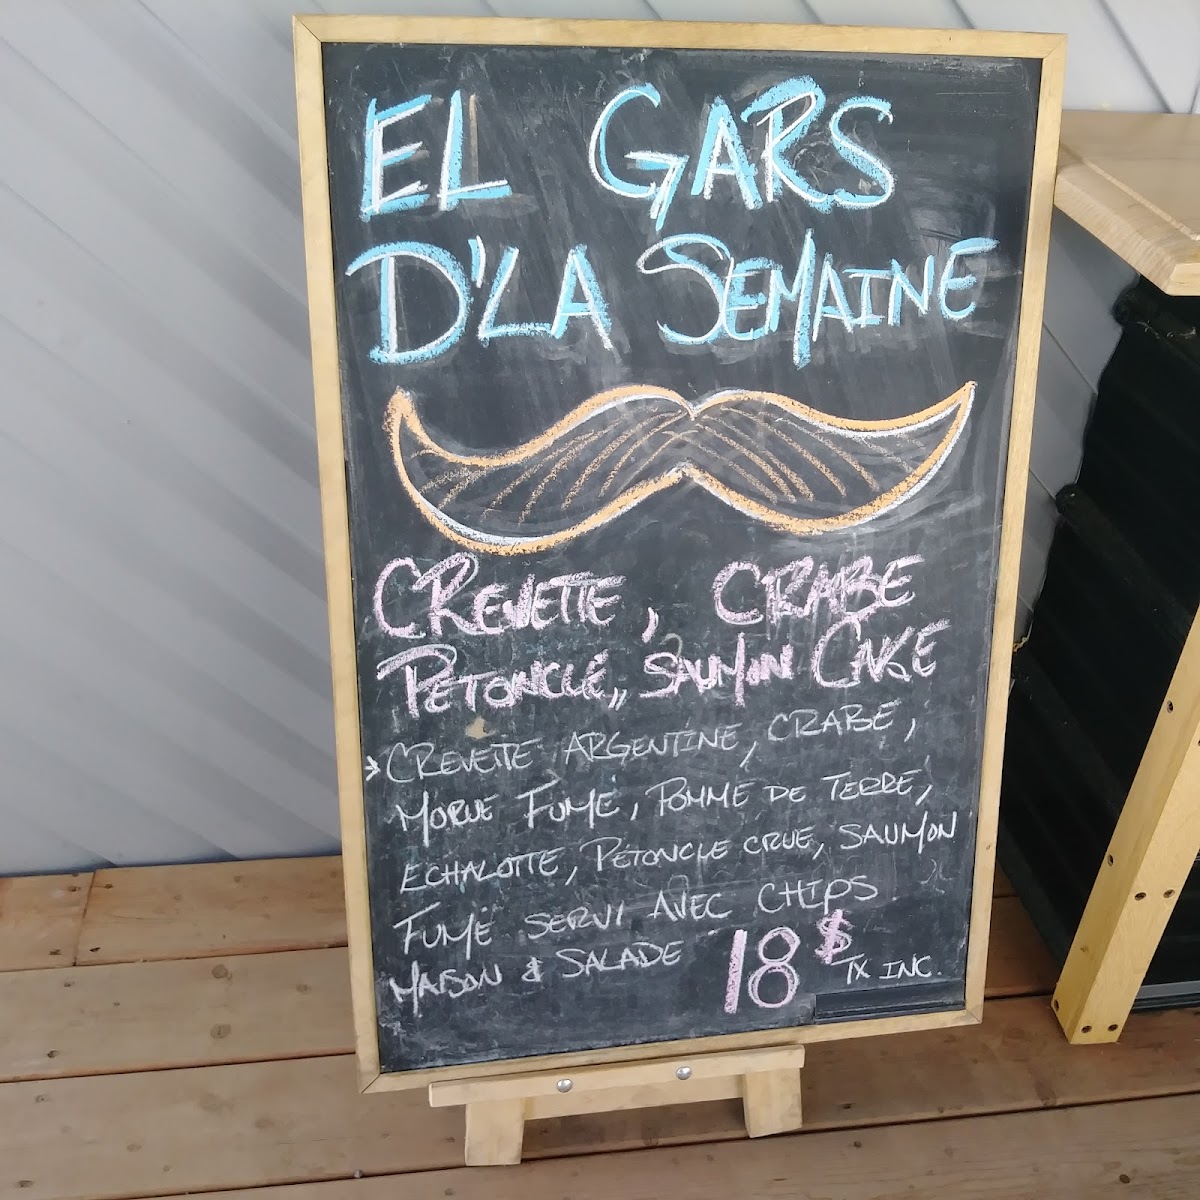 EL GARS
D'LA SEMAINE
CREVETTE, CRABE
PÉTONCLE, SAUMON CAKE
> CREVETTE ARGENTINE, CRABE,
MORUE FUMÉ, POMME DE TERRE,
ECHALOTTE, PÉTONCLE CRUE, SAUMON
FUMÉ SERVI AVEC CHIPS
MAISON & SALADE 18$
TX INC.